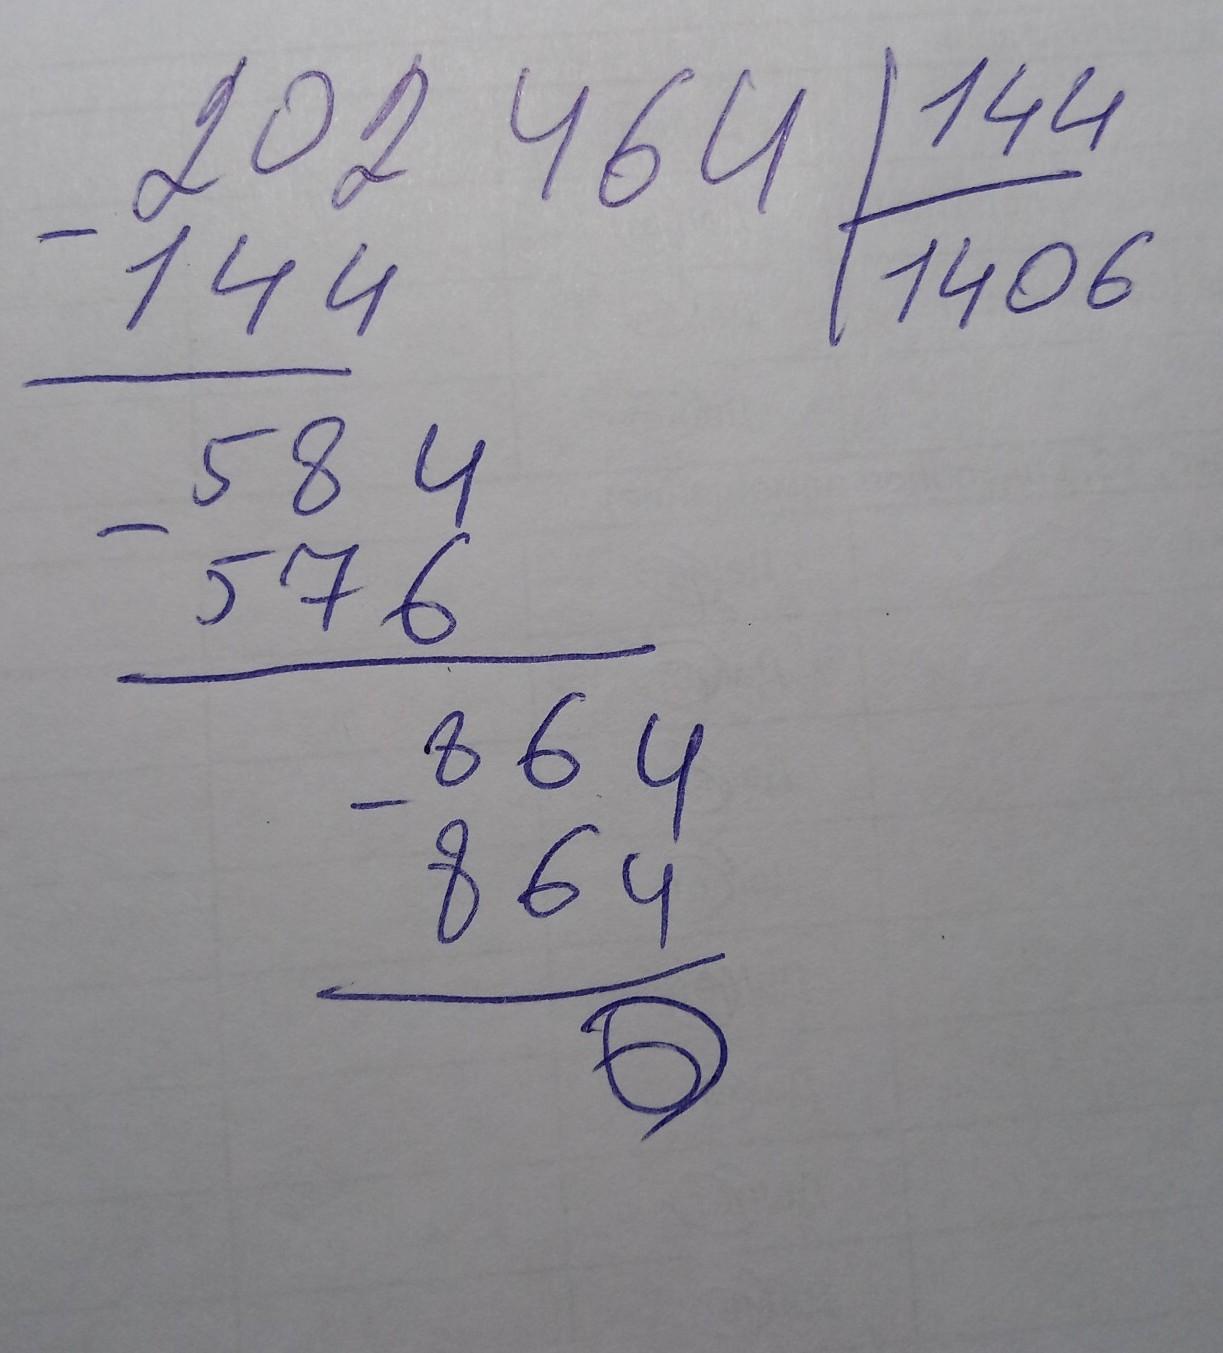 202 464 | 144
- 144 | 1406
584
- 576
864
- 864
0